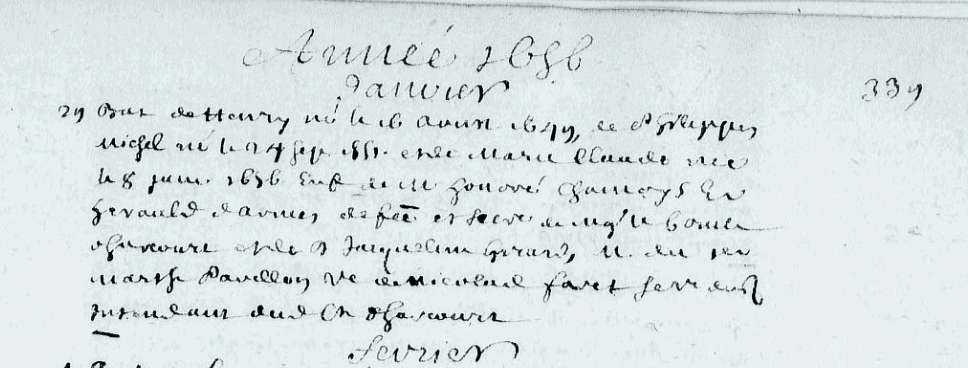 Année 1656
Janvier
339
29 Bat de Henry né le 16 avril 1649, de Philippes
Michel né le 24 sep 1651 et de Marie Claude née
le 8 janv. 1656 Enf de M Honoré
herauld d'armes de et secre de Mgr le Comte
d'harcourt et de D Jacqueline Girard, M. du 1er
Marthe Pavillon Ve de Nicolas faret
Intendant dud Cte d'harcourt
fevrier